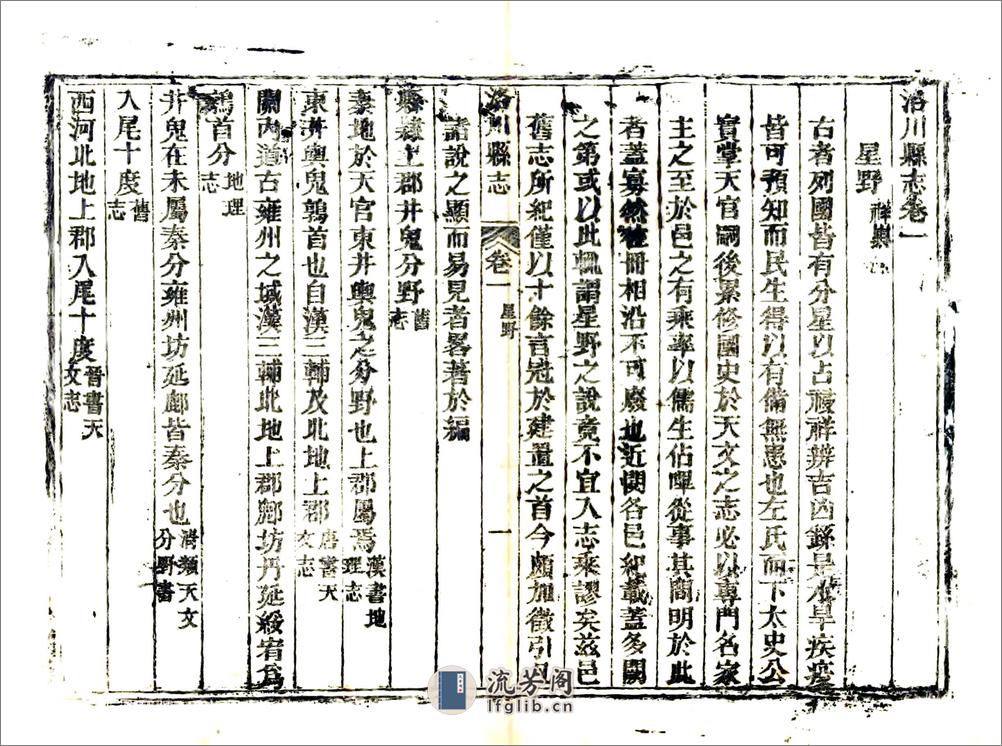 洛川縣志卷一
星野 祥異
古者列國皆有分星以占祲祥辨吉凶繇是水旱疾疫
皆可預知而民生得以有備無患也左氏而下太史公
實掌天官嗣後累修國史於天文之志必以專門名家
主之至於邑之有乘率以儒生佔嗶從事其間明於此
者蓋寡然
冊相沿不可廢也近閱各邑紀載蓋多闕
之第或以此輒謂星野之說竟不宜入志乘謬矣茲邑
舊志所紀僅以十餘言冠於建置之首今頗加徵引因
洛川縣志 卷一 星野 一
諸說之顯而易見者畧著於編
縣隸上郡井鬼分野 舊志
秦地於天官東井輿鬼之分野也上郡屬焉 漢書地理志
東井輿鬼鶉首也自漢三輔及北地上郡 唐書天文志
關內道古雍州之域漢三輔北地上郡鄜坊丹延綏宥爲
鶉首分 地理志
井鬼在未屬秦分雍州坊延鄜皆秦分也 清類天文分野書
入尾十度 舊志
西河北地上郡入尾十度 晉書天文志
流芳阁
lfglib.cn